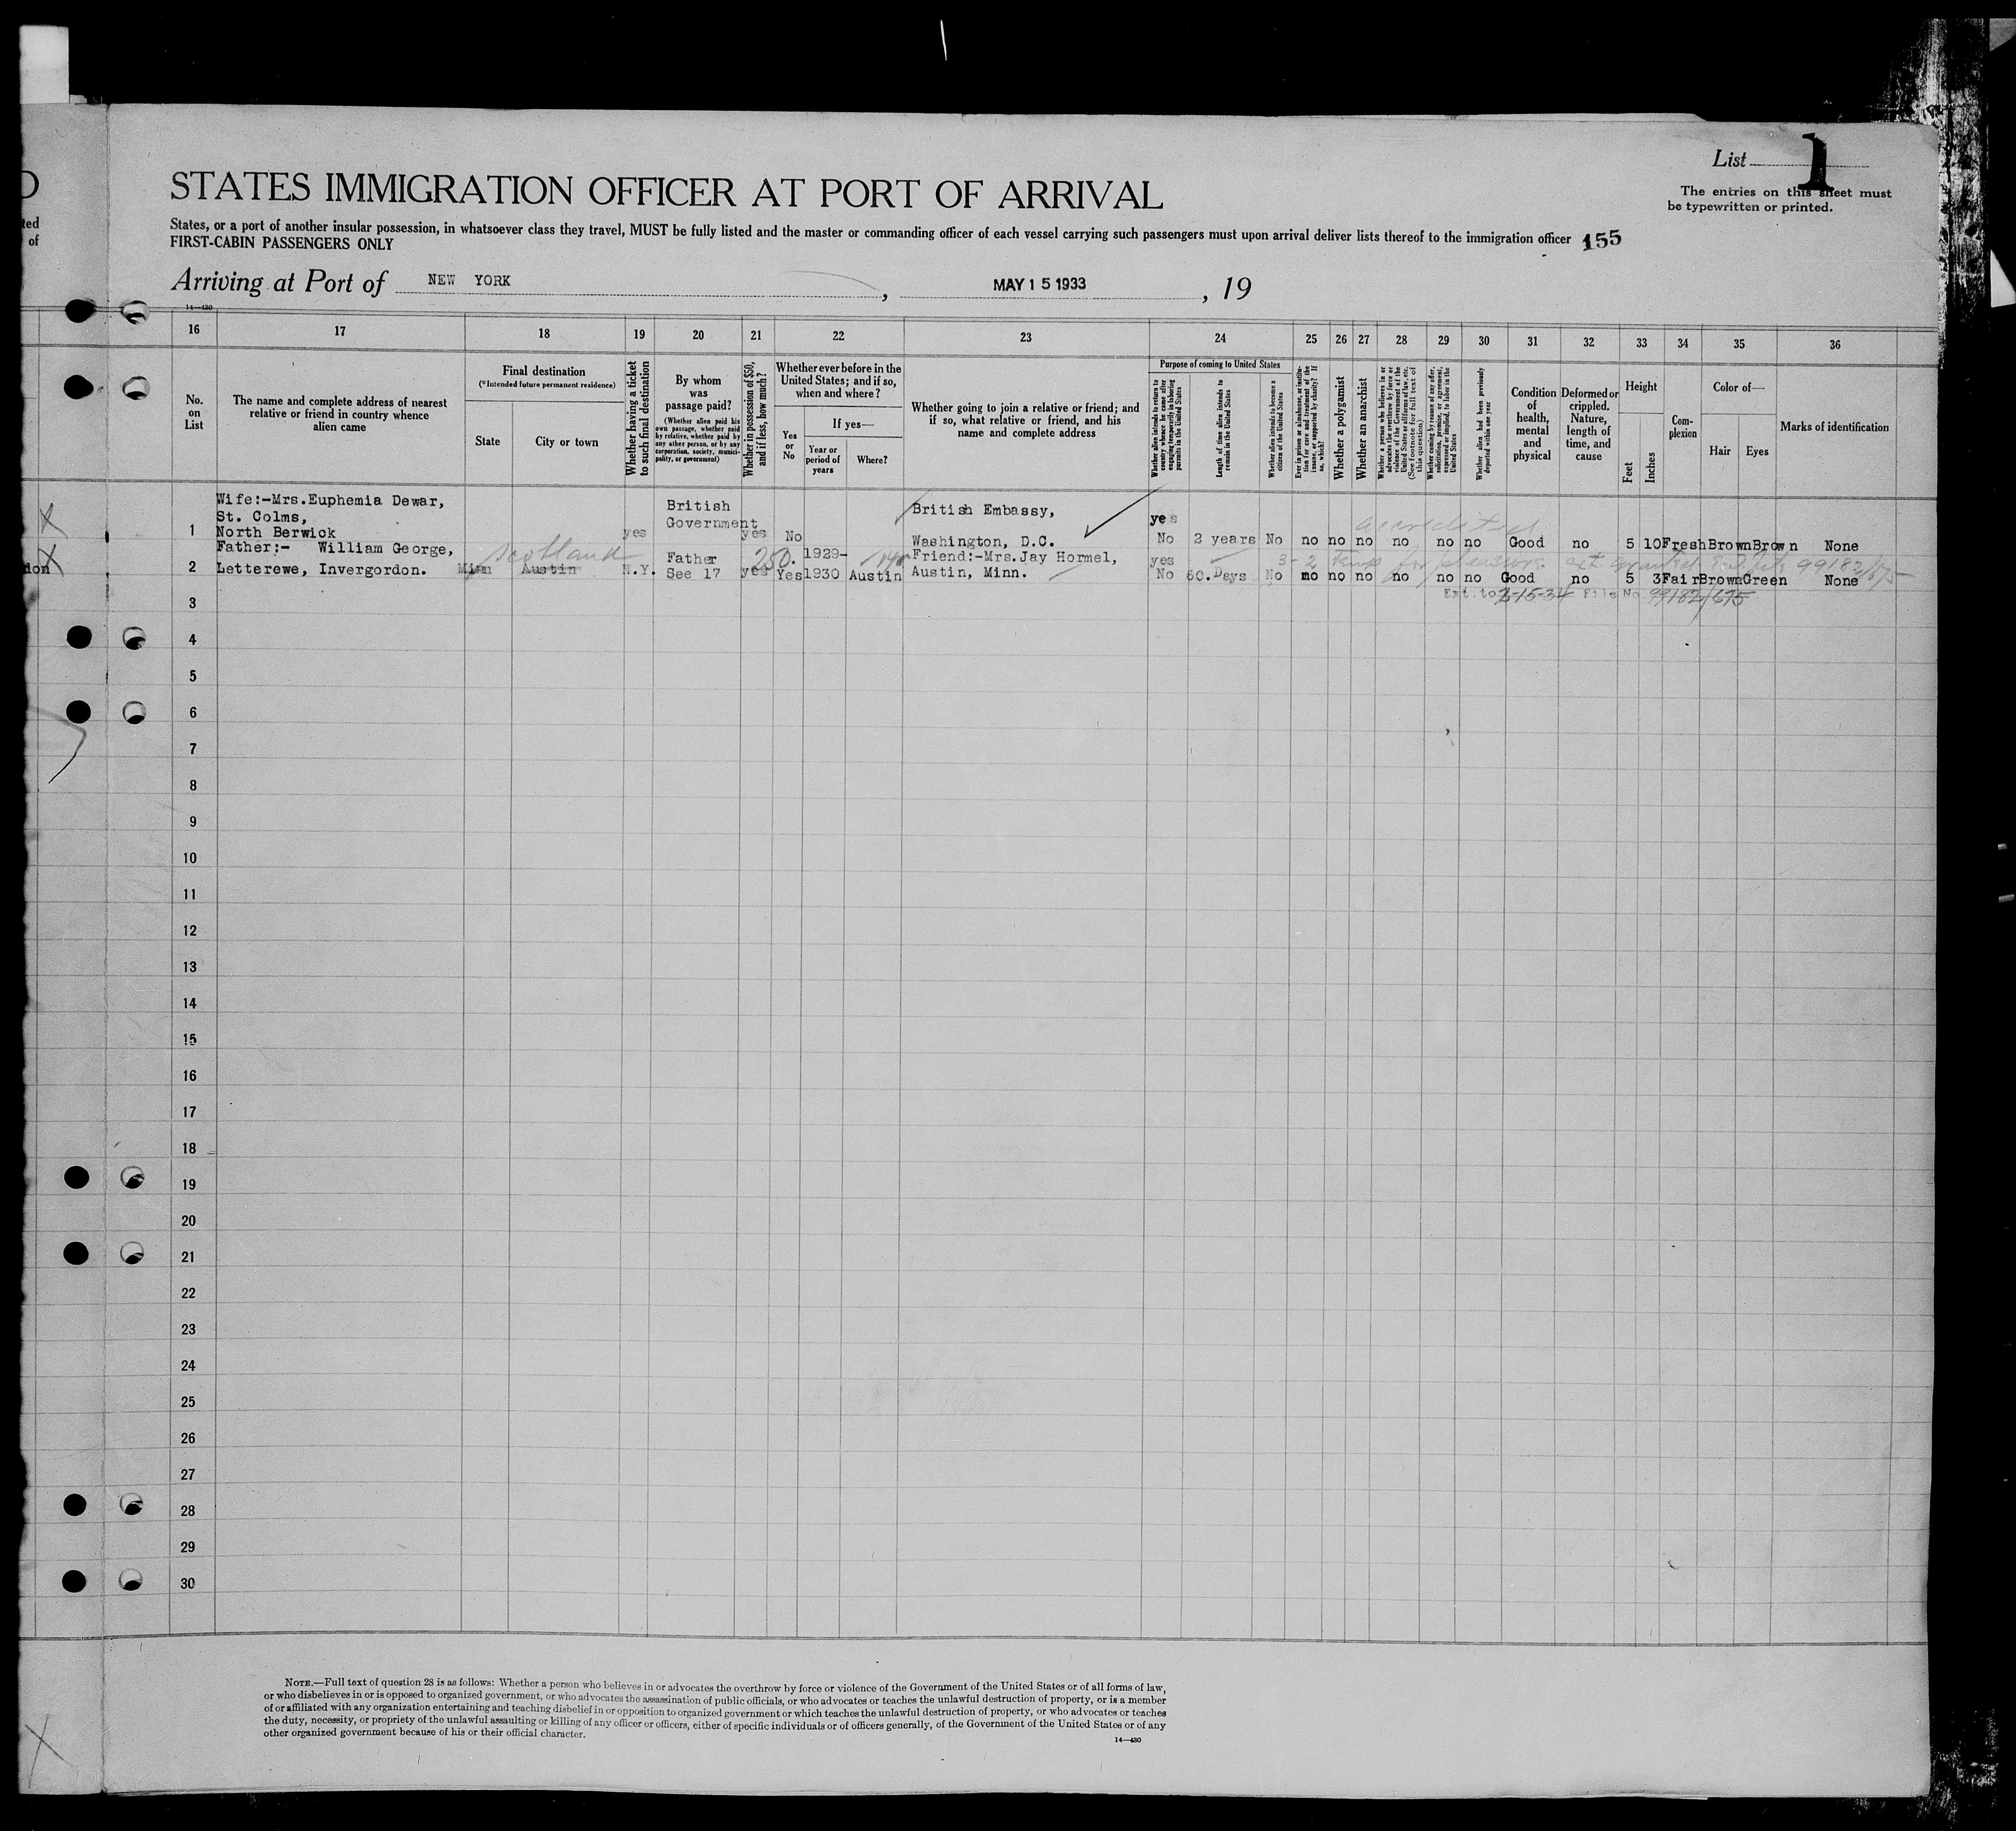 List 1
The entries on this sheet must
be typewritten or printed.
STATES IMMIGRATION OFFICER AT PORT OF ARRIVAL
States, or a port of another insular possession, in whatsoever class they travel, MUST be fully listed and the master or commanding officer of each vessel carrying such passengers must upon arrival deliver lists thereof to the immigration officer
FIRST-CABIN PASSENGERS ONLY
155
Arriving at Port of NEW YORK, MAY 15 1933, 19
14—430
16 17 18 19 20 21 22 23 24 25 26 27 28 29 30 31 32 33 34 35 36
No. on List
The name and complete address of nearest relative or friend in country whence alien came
Final destination
(*Intended future permanent residence)
State
City or town
Whether having a ticket to such final destination
By whom was passage paid?
(Whether alien paid his own passage, whether paid by relative, whether paid by any other person, or by any corporation, society, municipality, or government)
Whether in possession of $50, and if less, how much?
Whether ever before in the United States; and if so, when and where?
Yes or No
If yes—
Year or period of years
Where?
Whether going to join a relative or friend; and if so, what relative or friend, and his name and complete address
Purpose of coming to United States
Whether alien intends to return to country whence he came after engaging temporarily in laboring pursuits in the United States
Length of time alien intends to remain in the United States
Whether alien intends to become a citizen of the United States
Ever in prison or almshouse, or institution for care and treatment of the insane, or supported by charity? If so, which?
Whether a polygamist
Whether an anarchist
Whether a person who believes in or advocates the overthrow by force or violence of the Government of the United States or all forms of law, etc. (See footnote for full text of this question)
Whether coming by reason of any offer, solicitation, promise, or agreement, expressed or implied, to labor in the United States
Whether alien had been previously deported within one year
Condition of health, mental and physical
Deformed or crippled. Nature, length of time, and cause
Height
Feet
Inches
Complexion
Color of—
Hair
Eyes
Marks of identification
1 Wife:-Mrs.Euphemia Dewar, St. Colms, North Berwick yes British Government yes No British Embassy, Washington, D.C. yes No 2 years No no no no no no no Good no 5 10 Fresh Brown Brown None
accredited
2 Father:- William George, Letterewe, Invergordon. Scotland Minn Austin N.Y. Father See 17 250. yes Yes 1929-1930 Austin Friend:-Mrs.Jay Hormel, Austin, Minn. yes No 60.Days No no no no no no no Good no 5 3 Fair Brown Green None
3-2 temp for pleasure ext granted 99182/675
Ext. to 2-15-34 File No 99182/675
3
4
5
6
7
8
9
10
11
12
13
14
15
16
17
18
19
20
21
22
23
24
25
26
27
28
29
30
NOTE.—Full text of question 28 is as follows: Whether a person who believes in or advocates the overthrow by force or violence of the Government of the United States or of all forms of law,
or who disbelieves in or is opposed to organized government, or who advocates the assassination of public officials, or who advocates or teaches the unlawful destruction of property, or is a member
of or affiliated with any organization entertaining and teaching disbelief in or opposition to organized government or which teaches the unlawful destruction of property, or who advocates or teaches
the duty, necessity, or propriety of the unlawful assaulting or killing of any officer or officers, either of specific individuals or of officers generally, of the Government of the United States or of any
other organized government because of his or their official character.
14—430